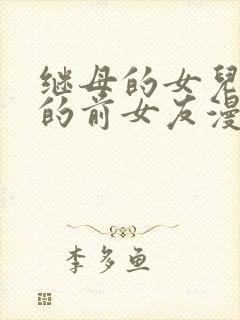 继母的女儿
的前女友漫
李多鱼